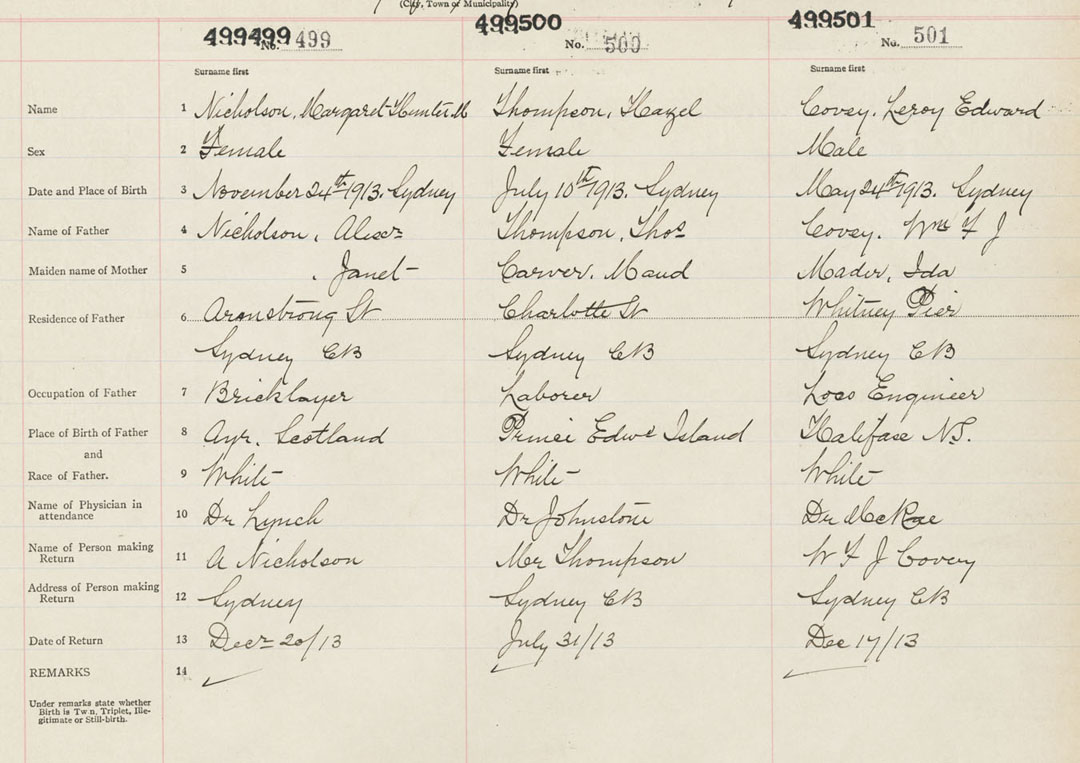 (City, Town or Municipality)
499499 No. 499 499500 No. 500 499501 No. 501
Surname first Surname first Surname first
Name 1 Nicholson, Margaret Hunter M Thompson, Hazel Covey, Leroy Edward
Sex 2 Female Female Male
Date and Place of Birth 3 November 24th 1913. Sydney July 10th 1913. Sydney May 24th 1913. Sydney
Name of Father 4 Nicholson, Alexr Thompson, Thos Covey. Wm F J
Maiden name of Mother 5 , Janet Carver, Maud Mader, Ida
Residence of Father 6 Armstrong St Charlotte St Whitney Pier
Sydney CB Sydney CB Sydney CB
Occupation of Father 7 Bricklayer Laborer Loco Engineer
Place of Birth of Father 8 Ayr, Scotland Prince Edwd Island Halifax NS.
and
Race of Father. 9 White White White
Name of Physician in
attendance 10 Dr Lynch Dr Johnstone Dr McRae
Name of Person making
Return 11 A Nicholson Mr Thompson W F J Covey
Address of Person making
Return 12 Sydney Sydney CB Sydney CB
Date of Return 13 Decr 20/13 July 31/13 Dec 17/13
REMARKS 14
Under remarks state whether
Birth is Twin, Triplet, Ille-
gitimate or Still-birth.